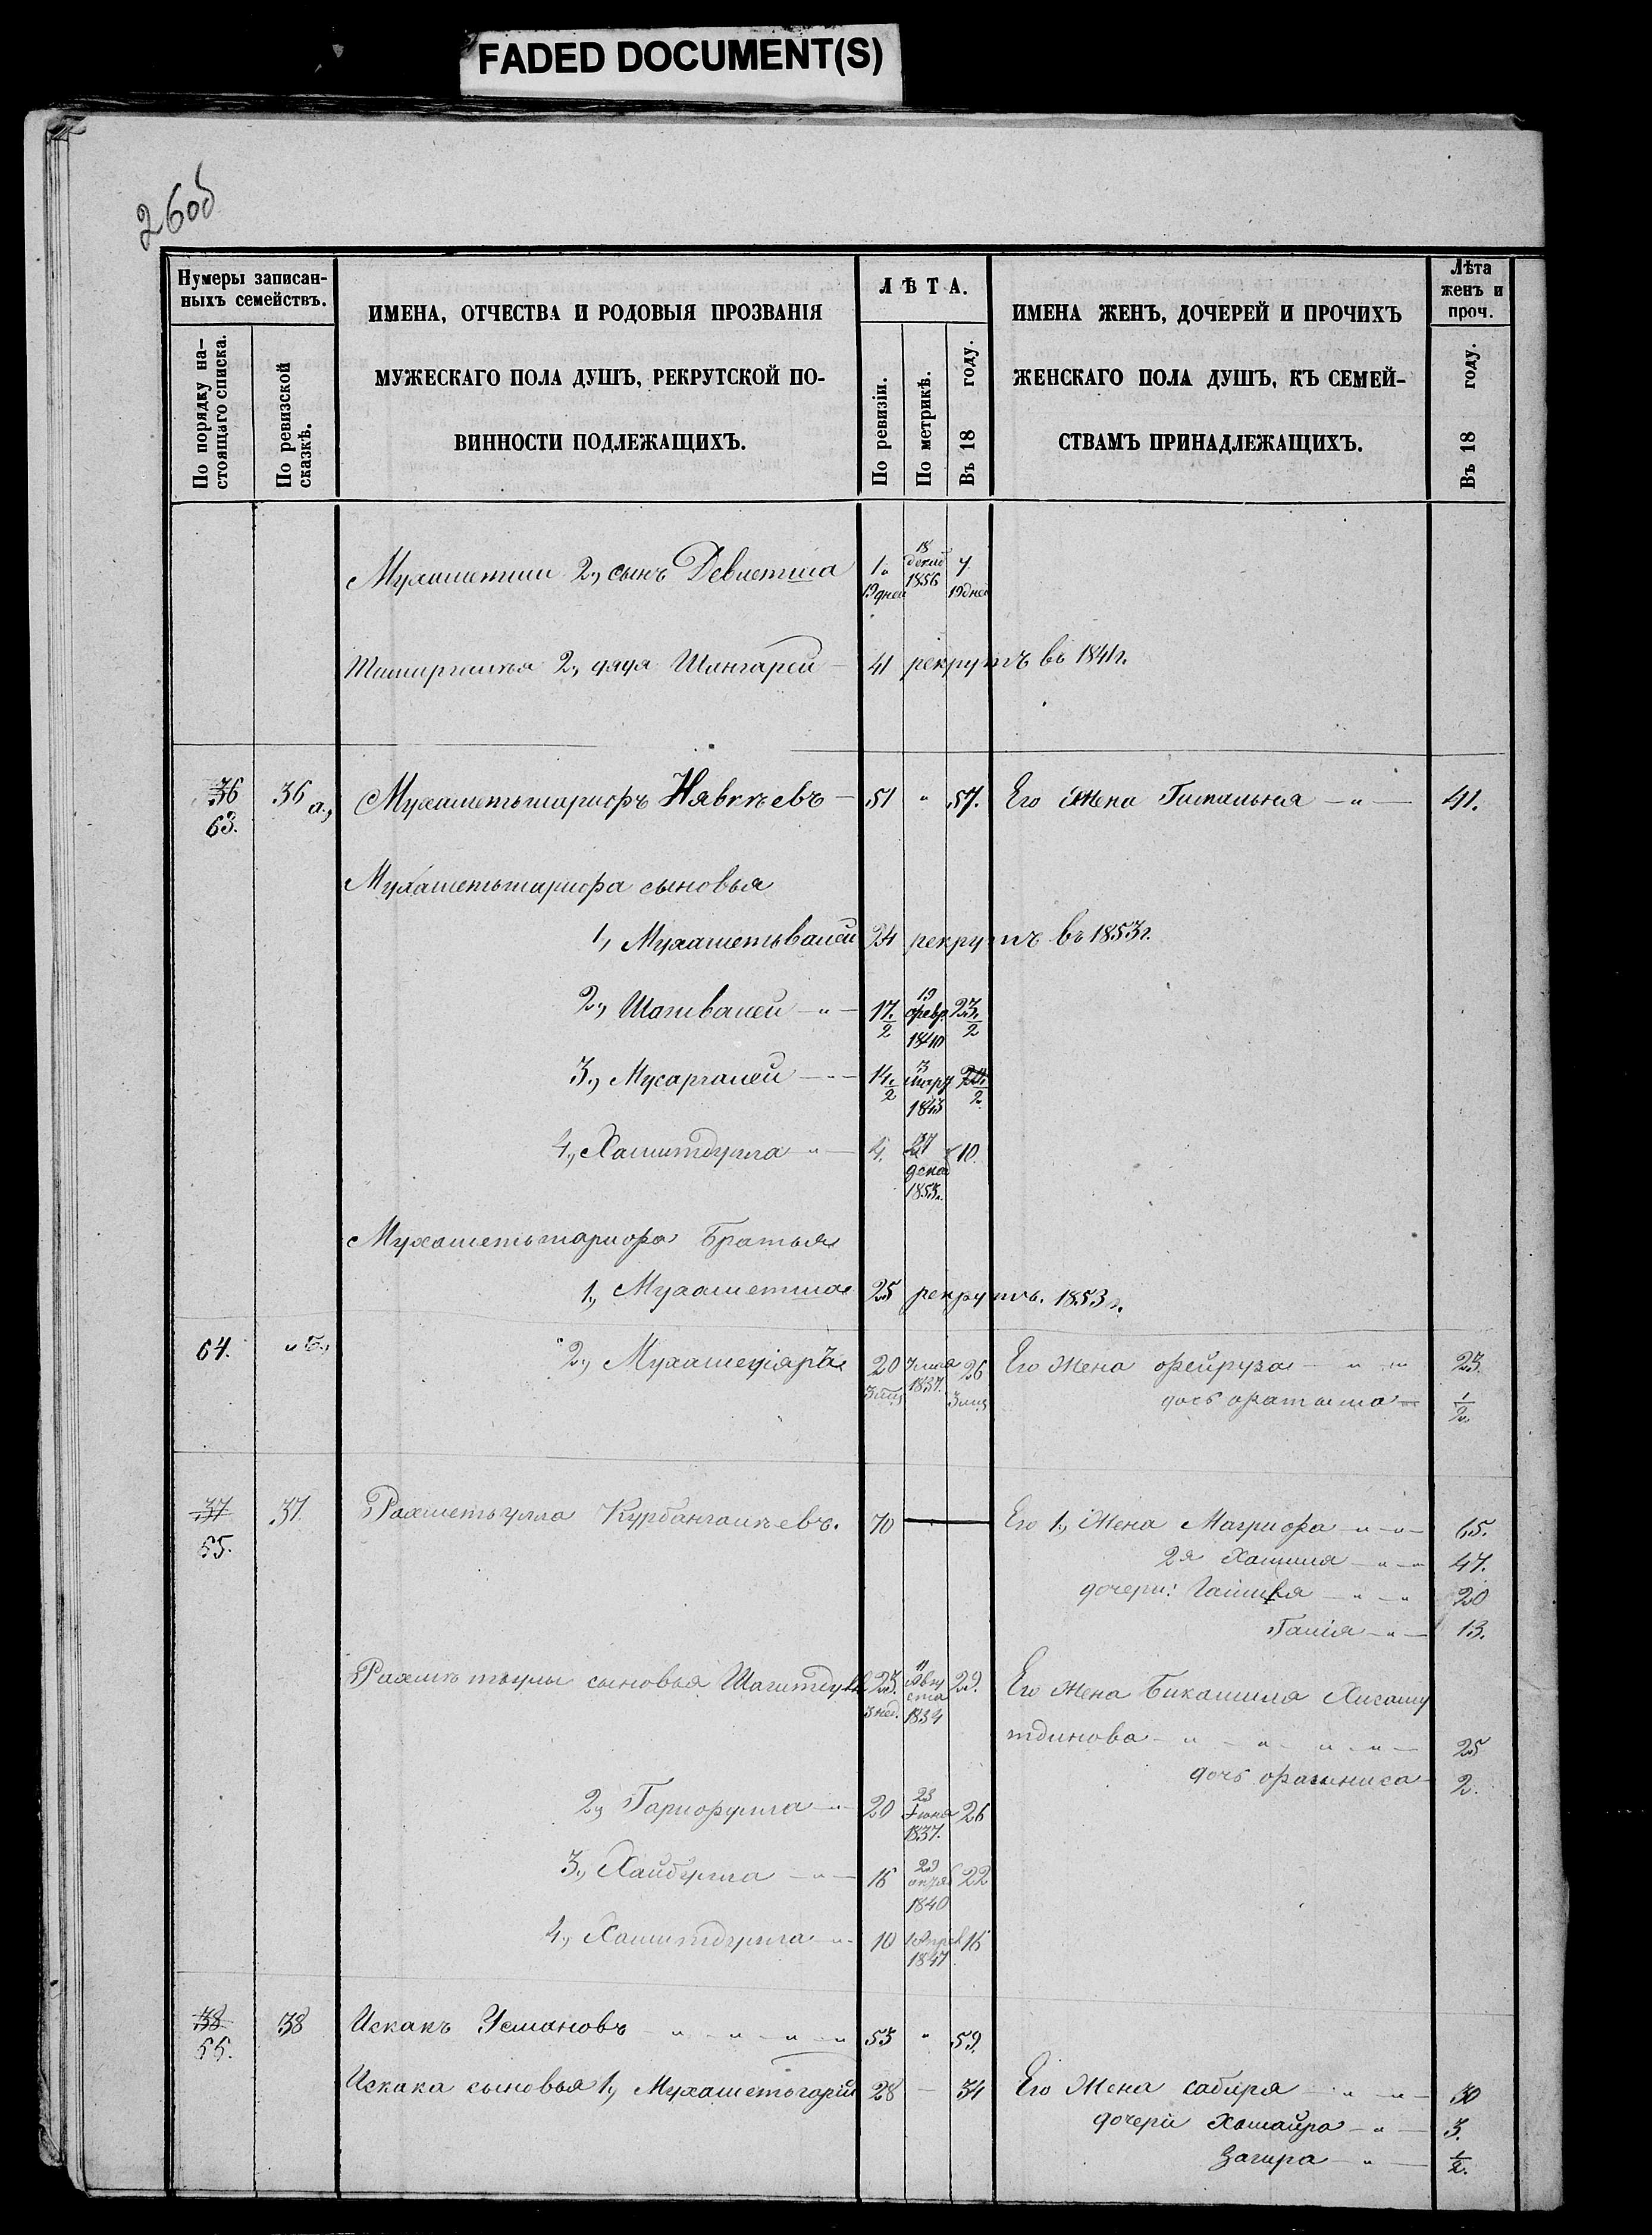 FADED DOCUMENT(S)
26об
Нумеры записан-
ныхъ семействъ.
По порядку на-
стоящаго списка.
По ревизской
сказкѣ.
ИМЕНА, ОТЧЕСТВА И РОДОВЫЯ ПРОЗВАНІЯ
МУЖЕСКАГО ПОЛА ДУШЪ, РЕКРУТСКОЙ ПО-
ВИННОСТИ ПОДЛЕЖАЩИХЪ.
ЛѢТА.
По ревизіи.
По метрикѣ.
Въ 18 году.
ИМЕНА ЖЕНЪ, ДОЧЕРЕЙ И ПРОЧИХЪ
ЖЕНСКАГО ПОЛА ДУШЪ, КЪ СЕМЕЙ-
СТВАМЪ ПРИНАДЛЕЖАЩИХЪ.
Лѣта
женъ и
проч.
Въ 18 году.
2, сынъ Девлетша 1 19 дней 18 декаб 1856 7 19 дней
2, дядя Шангарей 41 рекрутъ въ 1841г.
36 63. 36 а, Мухаметьшарифъ Нявкѣевъ 51 " 57. Его Жена 41.
Мухаметьшарифа сыновья
1, Мухаметьвалей 24 рекрутъ въ 1853г.
2, Шагивалей 17 1/2 19 февр. 1840 23 1/2
3, Мусаргалей 14 1/2 3 1843 20 1/2
4, Хамитдулла 4. 27 декаб 1853. 10.
Мухаметьшарифа Братья
1, Мухаметша 25 рекрутъ. 1853 г.
64. " б, 2, Мухамедіяръ 20 3 мѣс 1837. 26 3 мѣс Его Жена Фейруза 23.
дочь Фатыма 1/2
37 65. 37. Рахметьулла Курбангалѣевъ. 70 Его 1, Жена Магрифа 65.
2я Халила 47.
дочери: 20
Галія 13.
сыновья Шагитдул 23. 3 нед. 11 Августа 1834 29. Его Жена Бикамиля Хисаму
тдинова 25
дочь 2.
2, Гарифулла 20 23 Іюня 1837. 26
3, Хайбулла 16 29 1840 22
4, Хамитдулла 10 1 Апрел 1847 16
38 66. 38 Искакъ Усмановъ 53 " 59.
Искака сыновья 1, Мухаметьгарій 28 34 Его Жена сабиря 30
дочери Хамайра 3.
Загира 1/2.